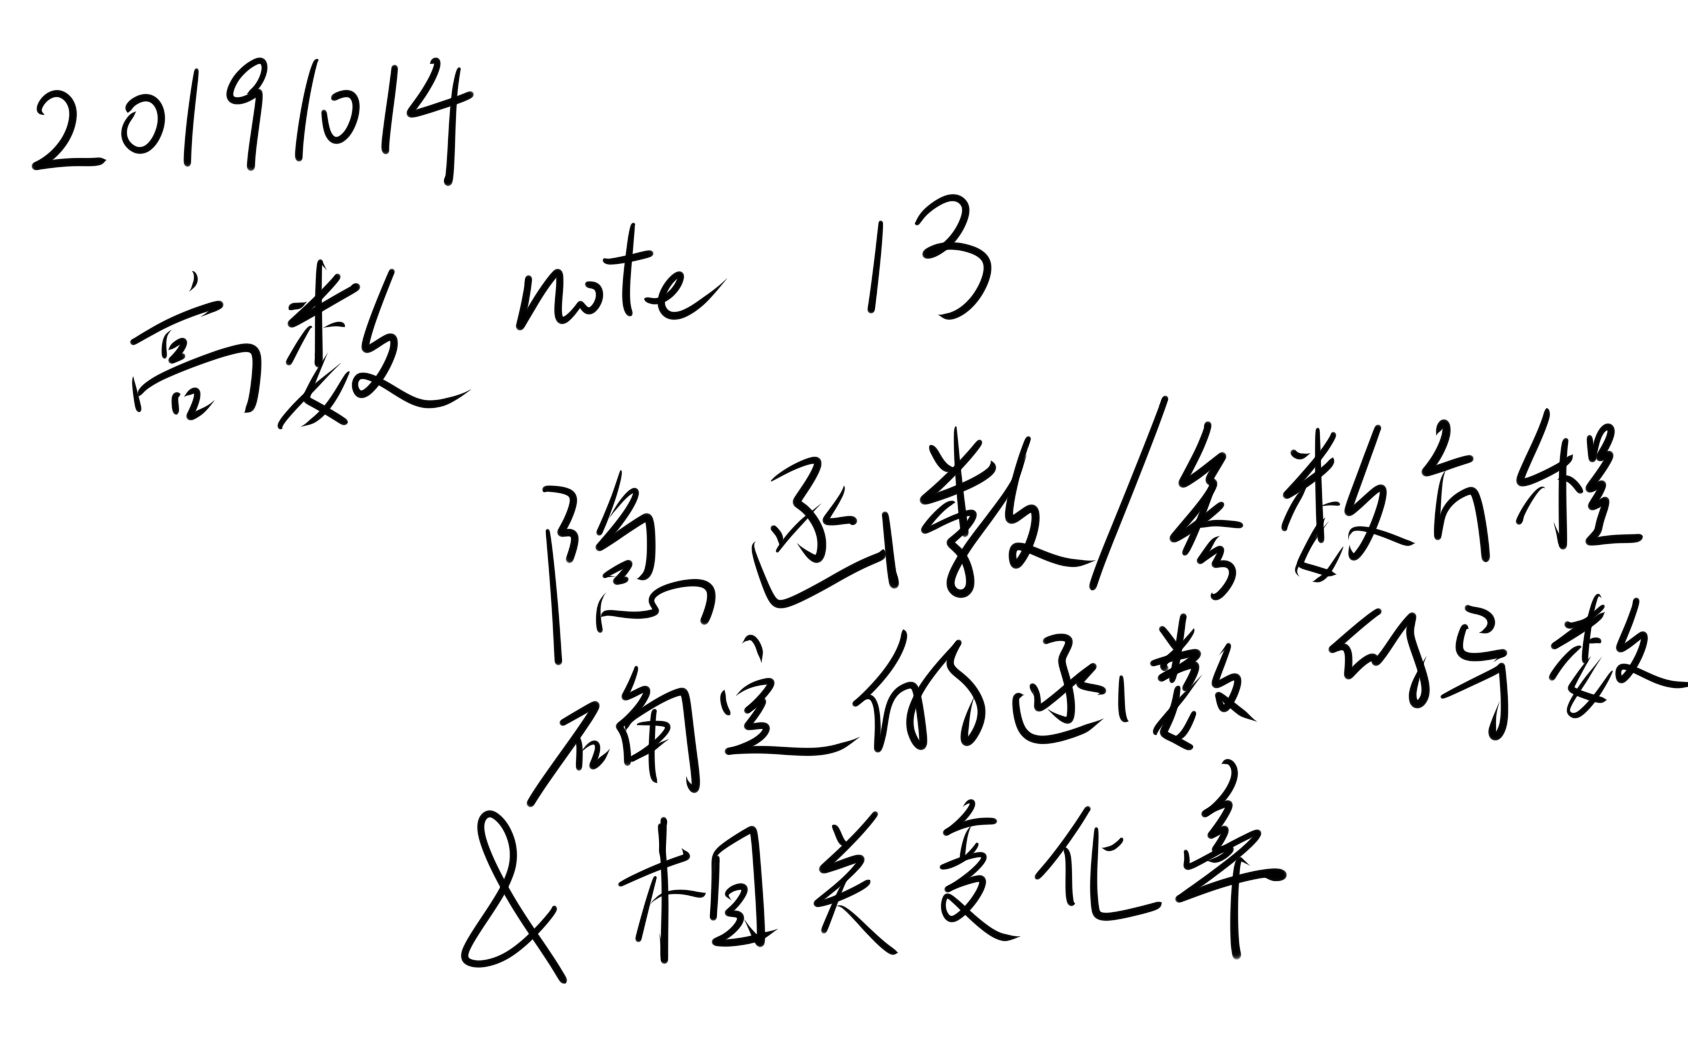 20191014
高数 note 13
隐函数/参数方程
确定的函数 的导数
& 相关变化率